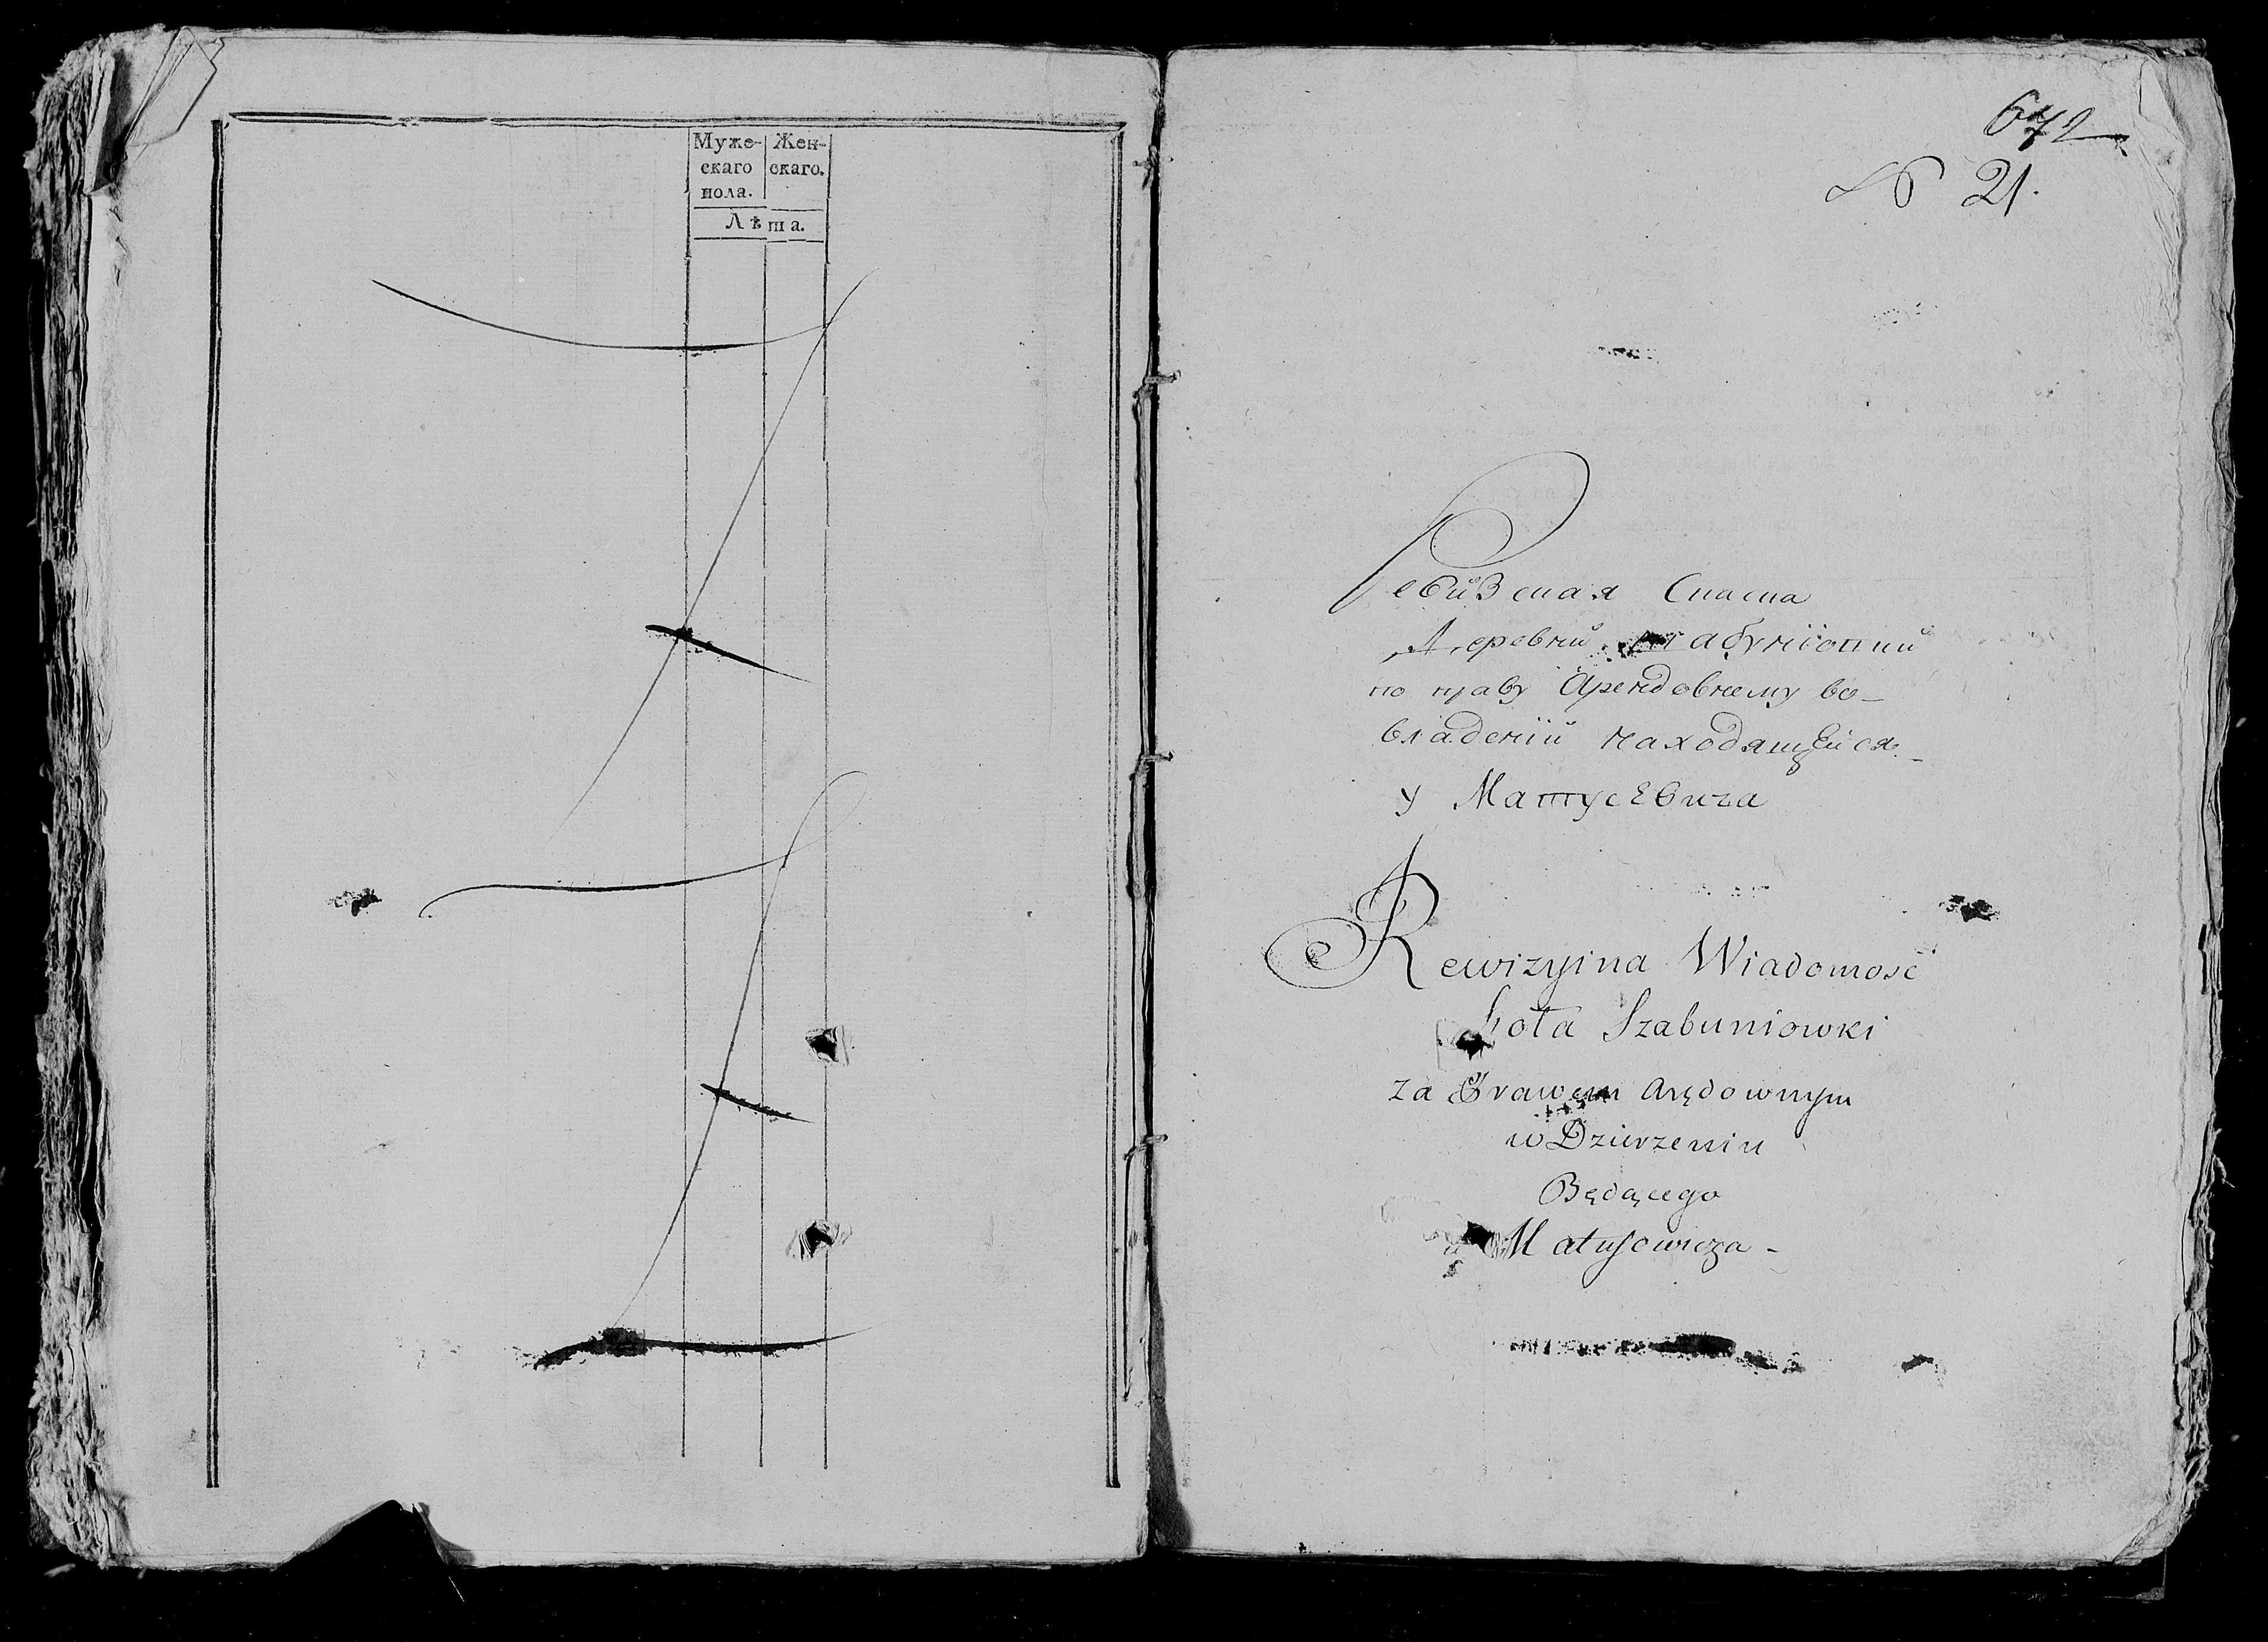 Муже-
скаго
пола.
Жен-
скаго.
Лѣта.
672
№ 21.
Ревизская Сказка
Деревни Шабуніовки
по праву Арендовнему во-
владеніи находящейся
у Матусевича
Rewizyina Wiadomość
Sioła Szabuniowki
za Prawem Arędownym
w Dzierżeniu
Będącego
u Matusewicza -